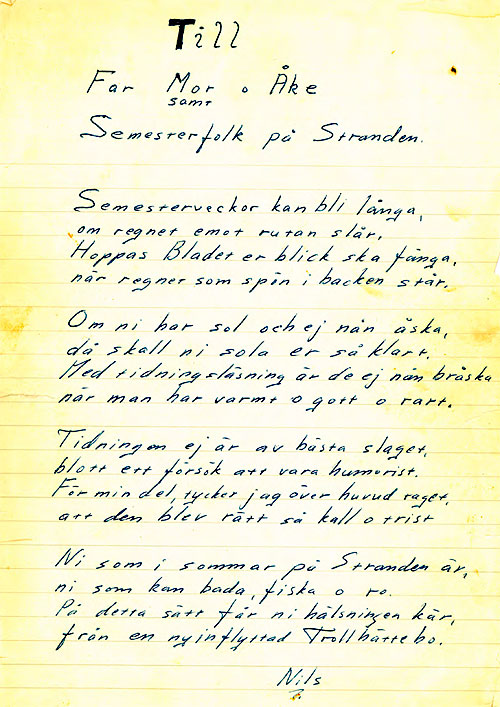 Till
Far Mor o Åke
samt
Semesterfolk på Stranden.
Semesterveckor kan bli långa,
om regnet emot rutan slår,
Hoppas Bladet er blick ska fånga,
när regnet som spön i backen står.
Om ni har sol och ej nån åska,
då skall ni sola er så klart.
Med tidningsläsning är de ej nån bråska
när man har varmt o gott o rart.
Tidningen ej är av bästa slaget,
blott ett försök att vara humorist.
För min del, tycker jag över huvud taget,
att den blev rätt så kall o trist
Ni som i sommar på Stranden är,
ni som kan bada, fiska o ro.
På detta sätt får ni hälsningen kär,
från en nyinflyttad Trollhättebo.
Nils